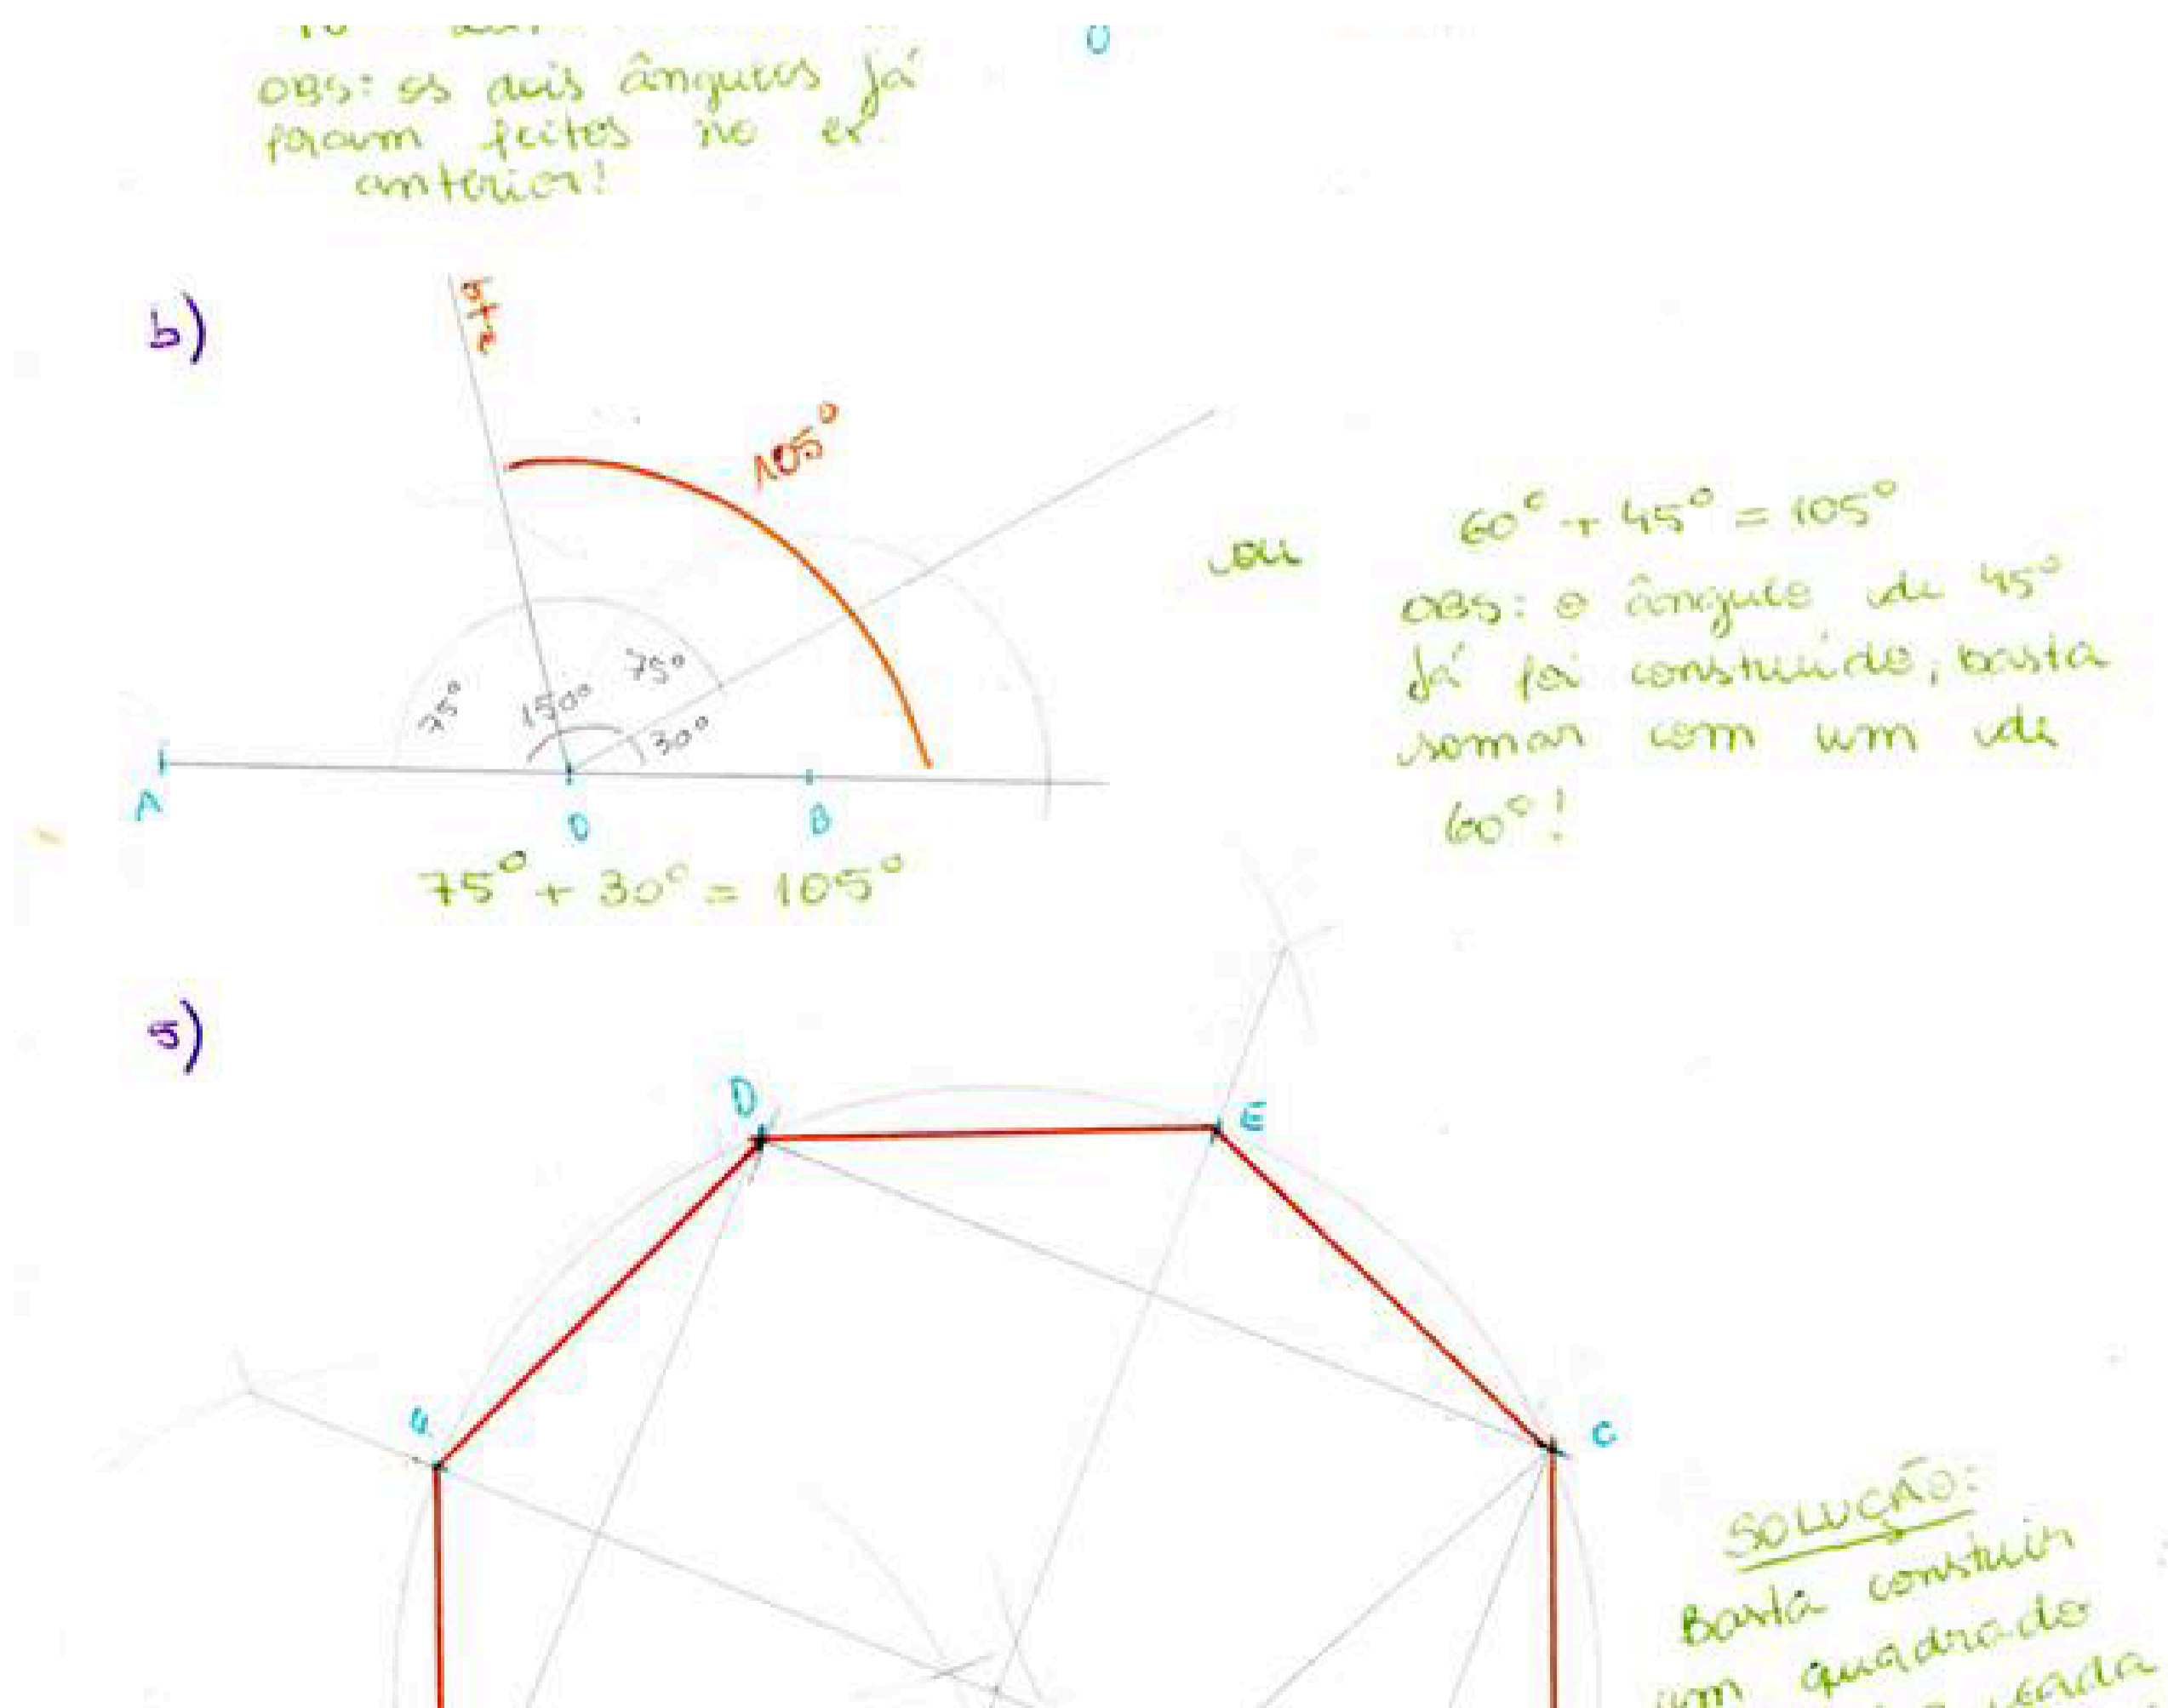 OBS: os dois ângulos já
foram feitos no ex.
anterior!
b)
105°
75°
150°
75°
30°
A
O
B
75° + 30° = 105°
ou
60° + 45° = 105°
OBS: o ângulo de 45°
já foi construído, basta
somar com um de
60°!
5)
D
E
C
SOLUÇÃO:
Basta construir
um quadrado